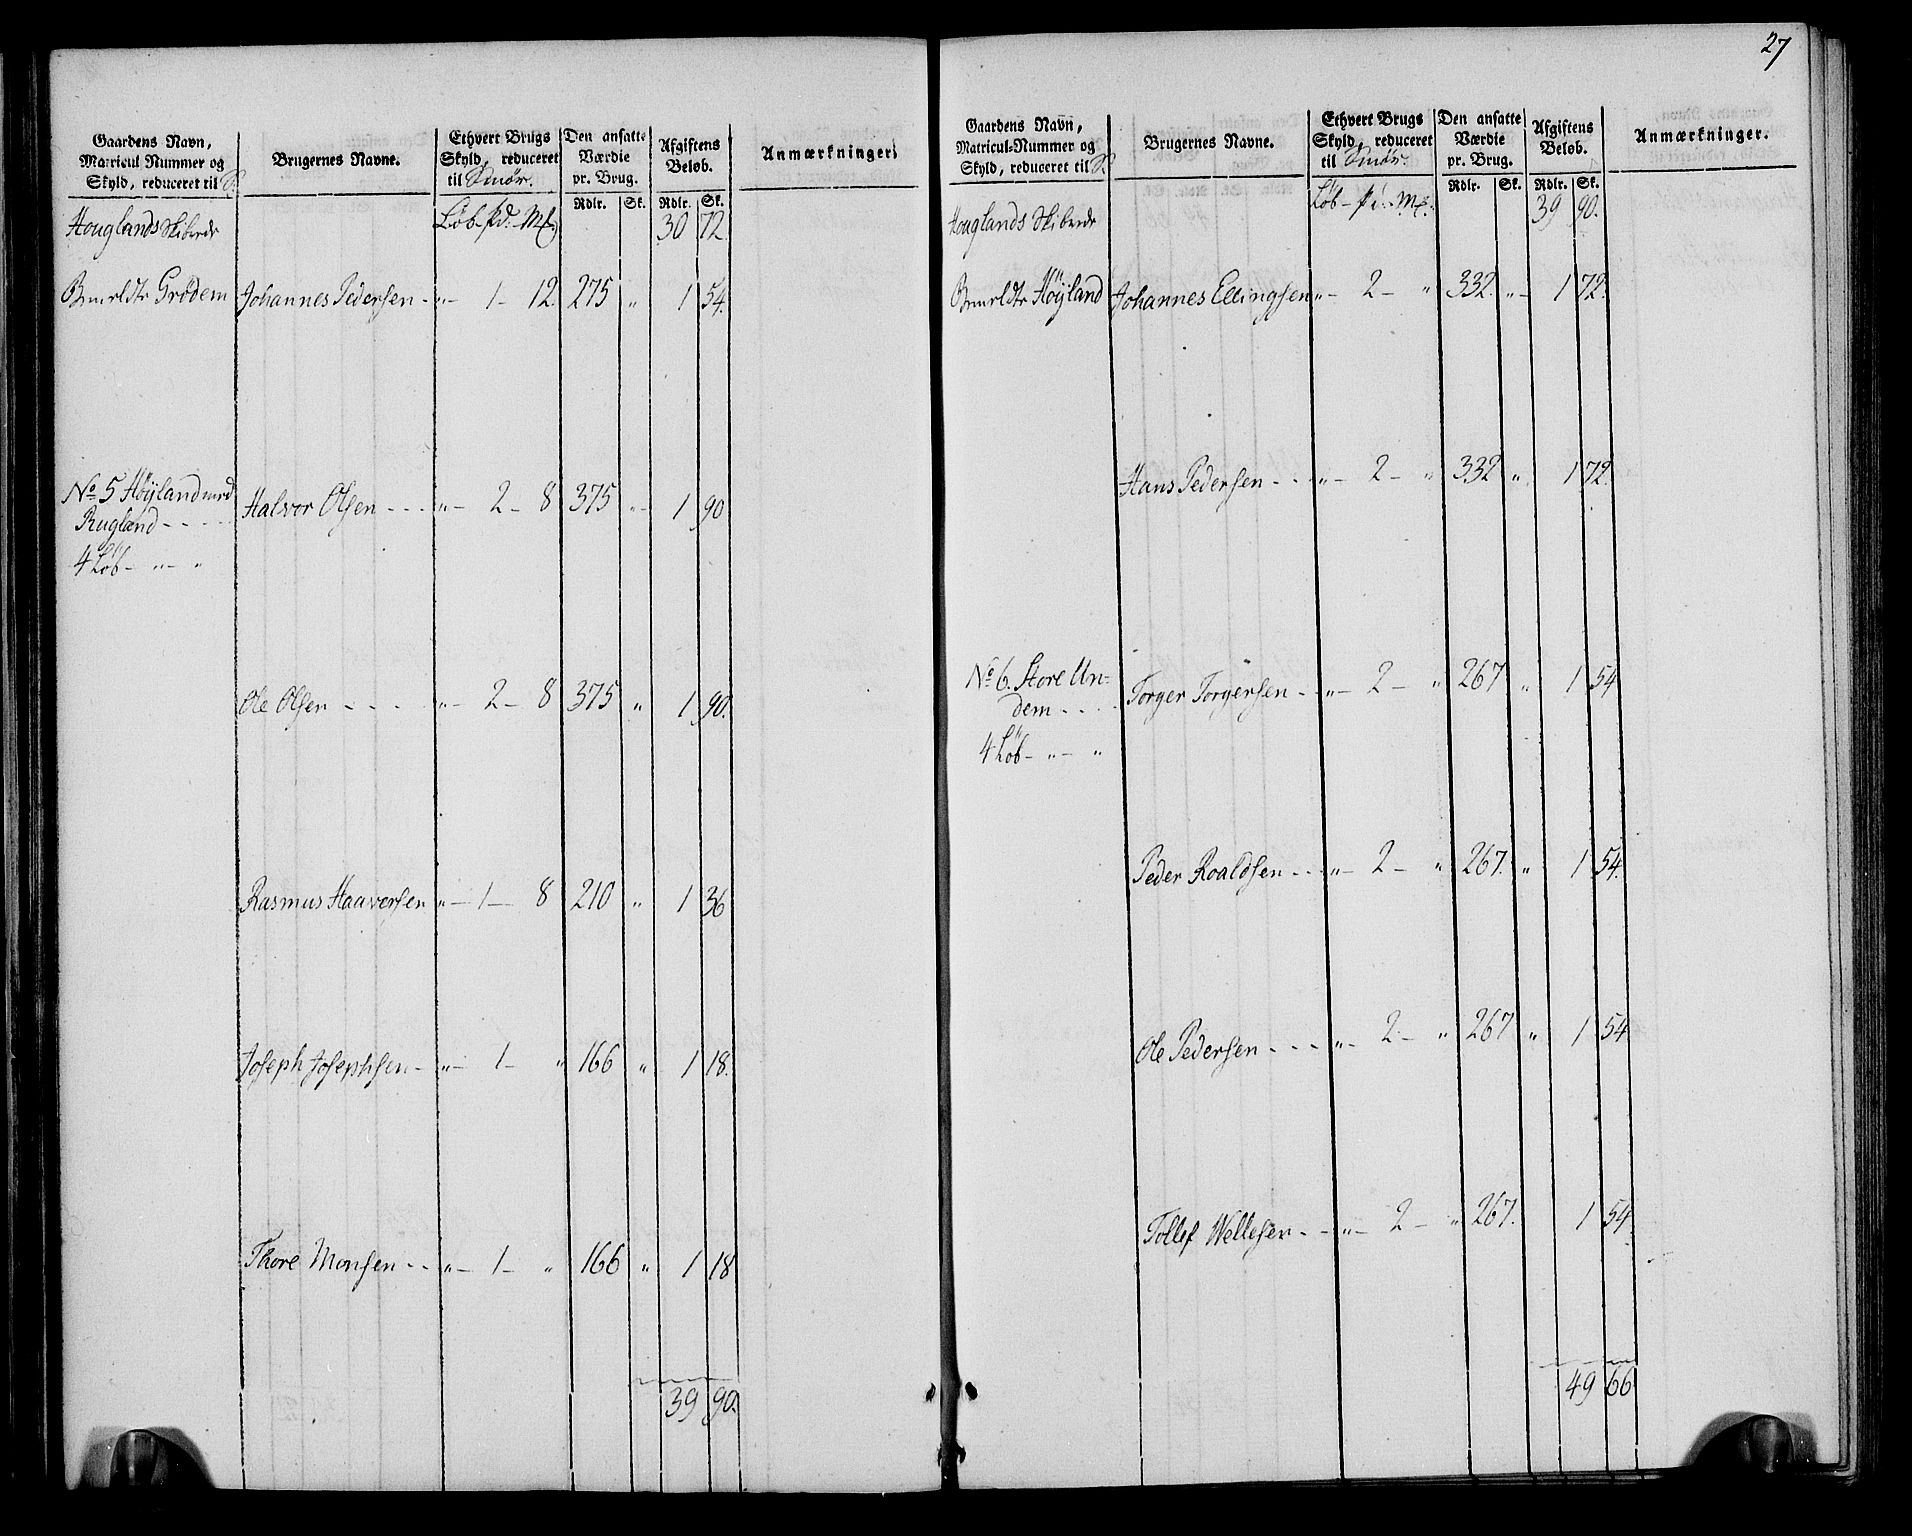 Gaardens Navn,
Matricul Nummer og
Skyld, reduceret til S.
Brugernes Navne.
Ethvert Brugs
Skyld, reduceret
til Smør.
Den ansatte
Værdie
pr. Brug.
Rdlr. Sk.
Afgiftens
Beløb.
Rdlr. Sk.
Anmærkninger.
Houglands Skibrede Løb - pd. - Mk 30 72.
Grødem Johannes Pedersen - " - 1 - 12. 275 " 1 54.
No 5 Høyland med
Rugland - - - - Halvor Olsen - - - " - 2 - 8 375 " - 1 90
4 Løb - " - "
Ole Olsen - - - - " - 2 - 8 375 " 1 90.
Rasmus Haaversen " - 1 - 8 210 " 1 36
Joseph Josephsen - " - 1 - " 166 " 1 18.
Thore Monsen - - " - 1 - " 166 " 1 18
39 90.
27
Gaardens Navn,
Matricul-Nummer og
Skyld, reduceret til S.
Brugernes Navne.
Ethvert Brugs
Skyld, reduceret
til Smør.
Den ansatte
Værdie
pr. Brug.
Rdlr. Sk.
Afgiftens
Beløb.
Rdlr. Sk.
Anmærkninger.
Houglands Skibrede Løb - pd. - Mk. 39 90.
Høyland Johannes Ellingsen " - 2 - " 332. " - 1 72.
Hans Pedersen - - - " - 2 - " 332 " 1 72.
No 6. Store Un=
dem - - - - Torger Torgersen - " - 2 - " 267 " 1 54
4 Løb - " - "
Peder Roaldsen - - " - 2 - " 267. " 1 54.
Ole Pedersen - - - " - 2 - " 267 " 1 54
Tollef Wellesen - - " - 2 - " 267. 1 54
49 66